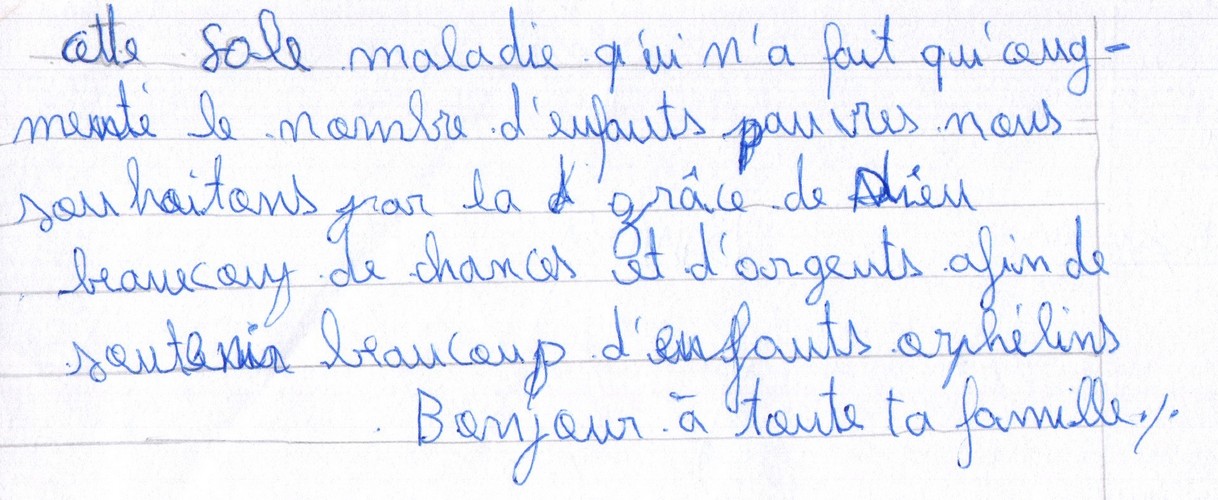 cette sale maladie q'ui n'a fait qu'aug-
menté le nombre d'enfants pauvres nous
souhaitons par la grâce de Dieu
beaucoup de chances et d'argents afin de
soutenir beaucoup d'enfants orphélins
Bonjour à toute ta famille./.